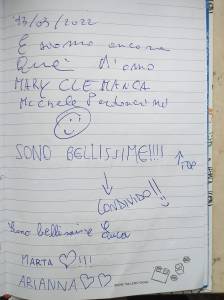 13/03/2022
E siamo ancora
Qua!
MARY CLE MANCA
Michele
SONO BELLISSIME!!!!
↑TOP
CONDIVIDO!!
Sono bellissime Luca
MARTA ♡!!!
ARIANNA♡♡